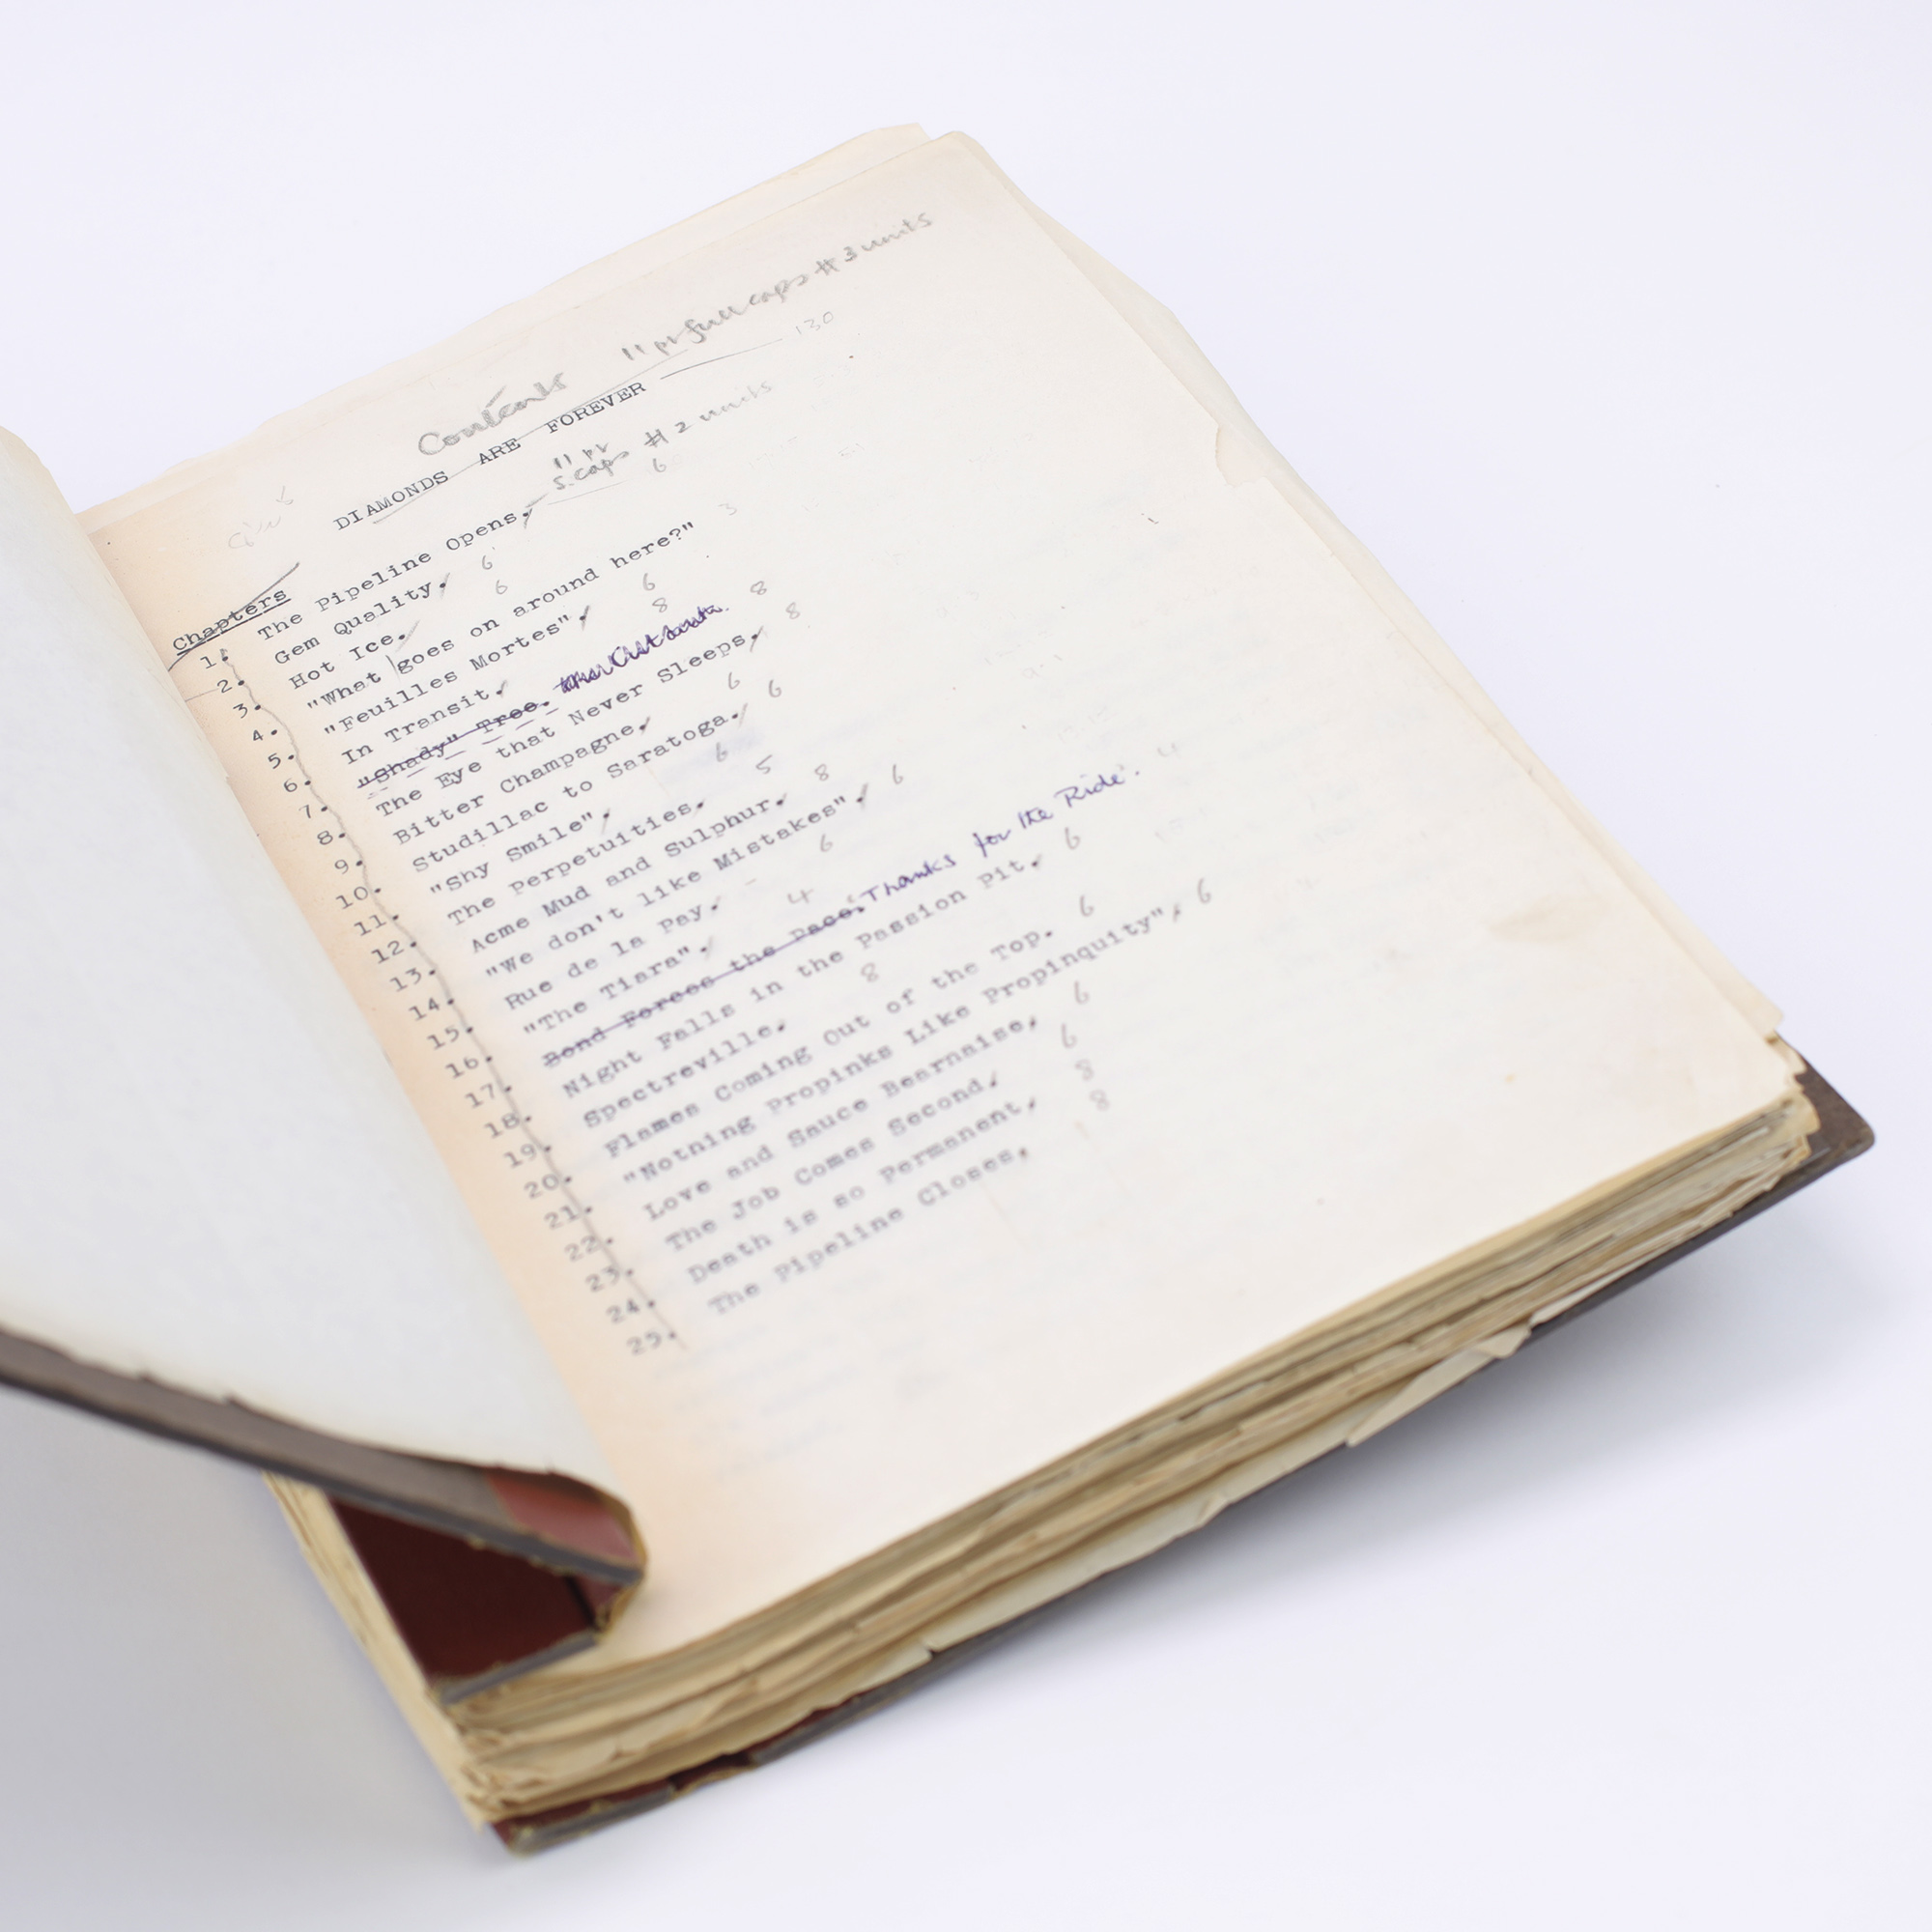 Contents 11 pt full caps # 3 units
DIAMONDS ARE FOREVER 130
11 pt
s. caps # 2 units
Chapters
1. The Pipeline Opens. 6
2. Gem Quality. 6
3. Hot Ice. 6
4. "What goes on around here?" 3
5. "Feuilles Mortes". 6
6. In Transit. 8
7. "Shady" Tree. 8
8. The Eye that Never Sleeps. 8
9. Bitter Champagne. 6
10. Studillac to Saratoga. 6
11. "Shy Smile". 6
12. The Perpetuities. 5
13. Acme Mud and Sulphur. 8
14. "We don't like Mistakes". 6
15. Rue de la Pay. 6
16. "The Tiara". 4
17. Bond Forces the Pace. Thanks for the Ride. 4
18. Night Falls in the Passion Pit. 6
19. Spectreville. 8
20. Flames Coming Out of the Top. 6
21. "Notning Propinks Like Propinquity". 6
22. Love and Sauce Bearnaise. 6
23. The Job Comes Second. 6
24. Death is so Permanent. 8
25. The Pipeline Closes. 8